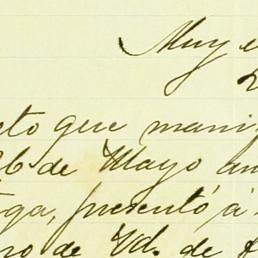 Muy
cto que mani
26 de Mayo an
ga, presentó á
no de Vd. de